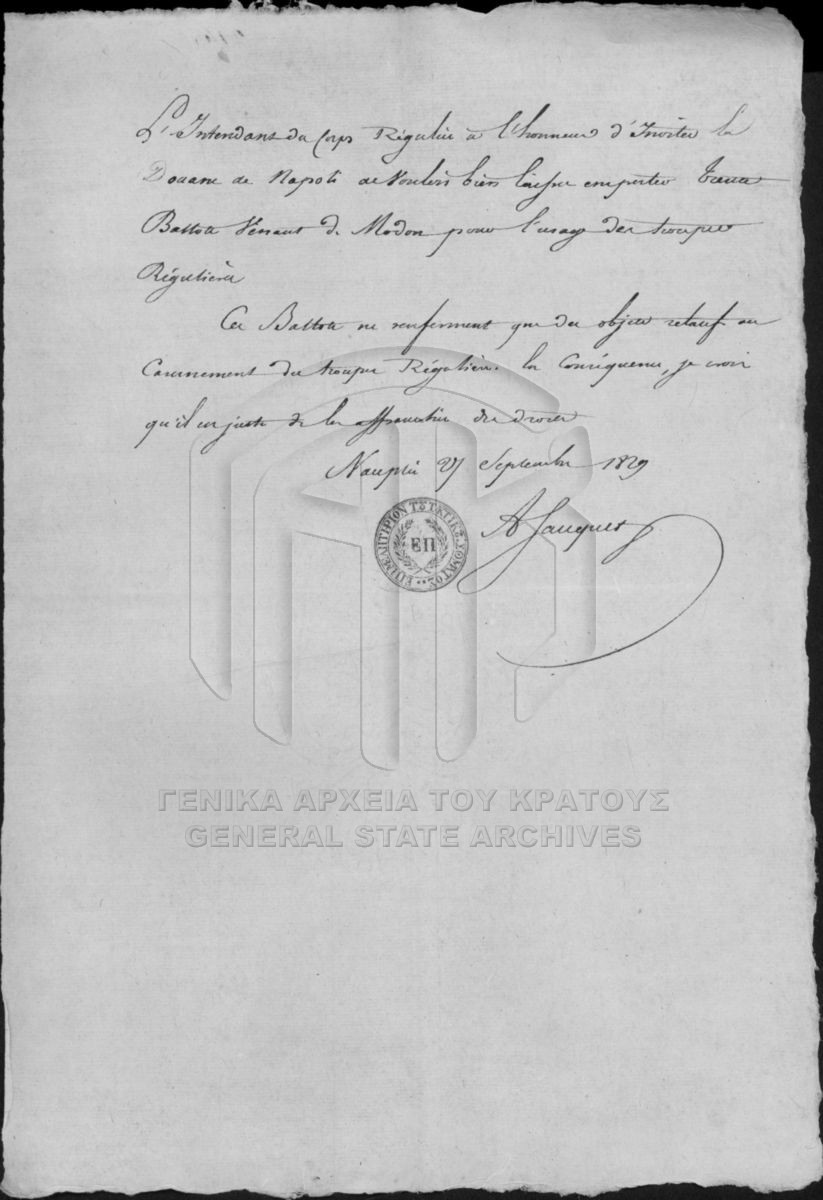 L'Intendant du Corps Régulier a l'honneur d'Inviter la
Douane de Napoli de Vouloir bien laisser emporter trente
Ballots Venant de Modon pour l'usage des troupes
Régulières
Ces Ballots ne renferment que des objets relatifs au
des troupes Régulières. En Conséquence, je crois
qu'il est juste de les des droits
Nauplie 27 Septembre 1829
A Jacquet
ΕΠΙΜΕΛΗΤΗΡΙΟΝ ΤΟΥ ΤΑΚΤΙΚΟΥ ΣΩΜΑΤΟΣ
ΕΠ
ΓΕΝΙΚΑ ΑΡΧΕΙΑ ΤΟΥ ΚΡΑΤΟΥΣ
GENERAL STATE ARCHIVES